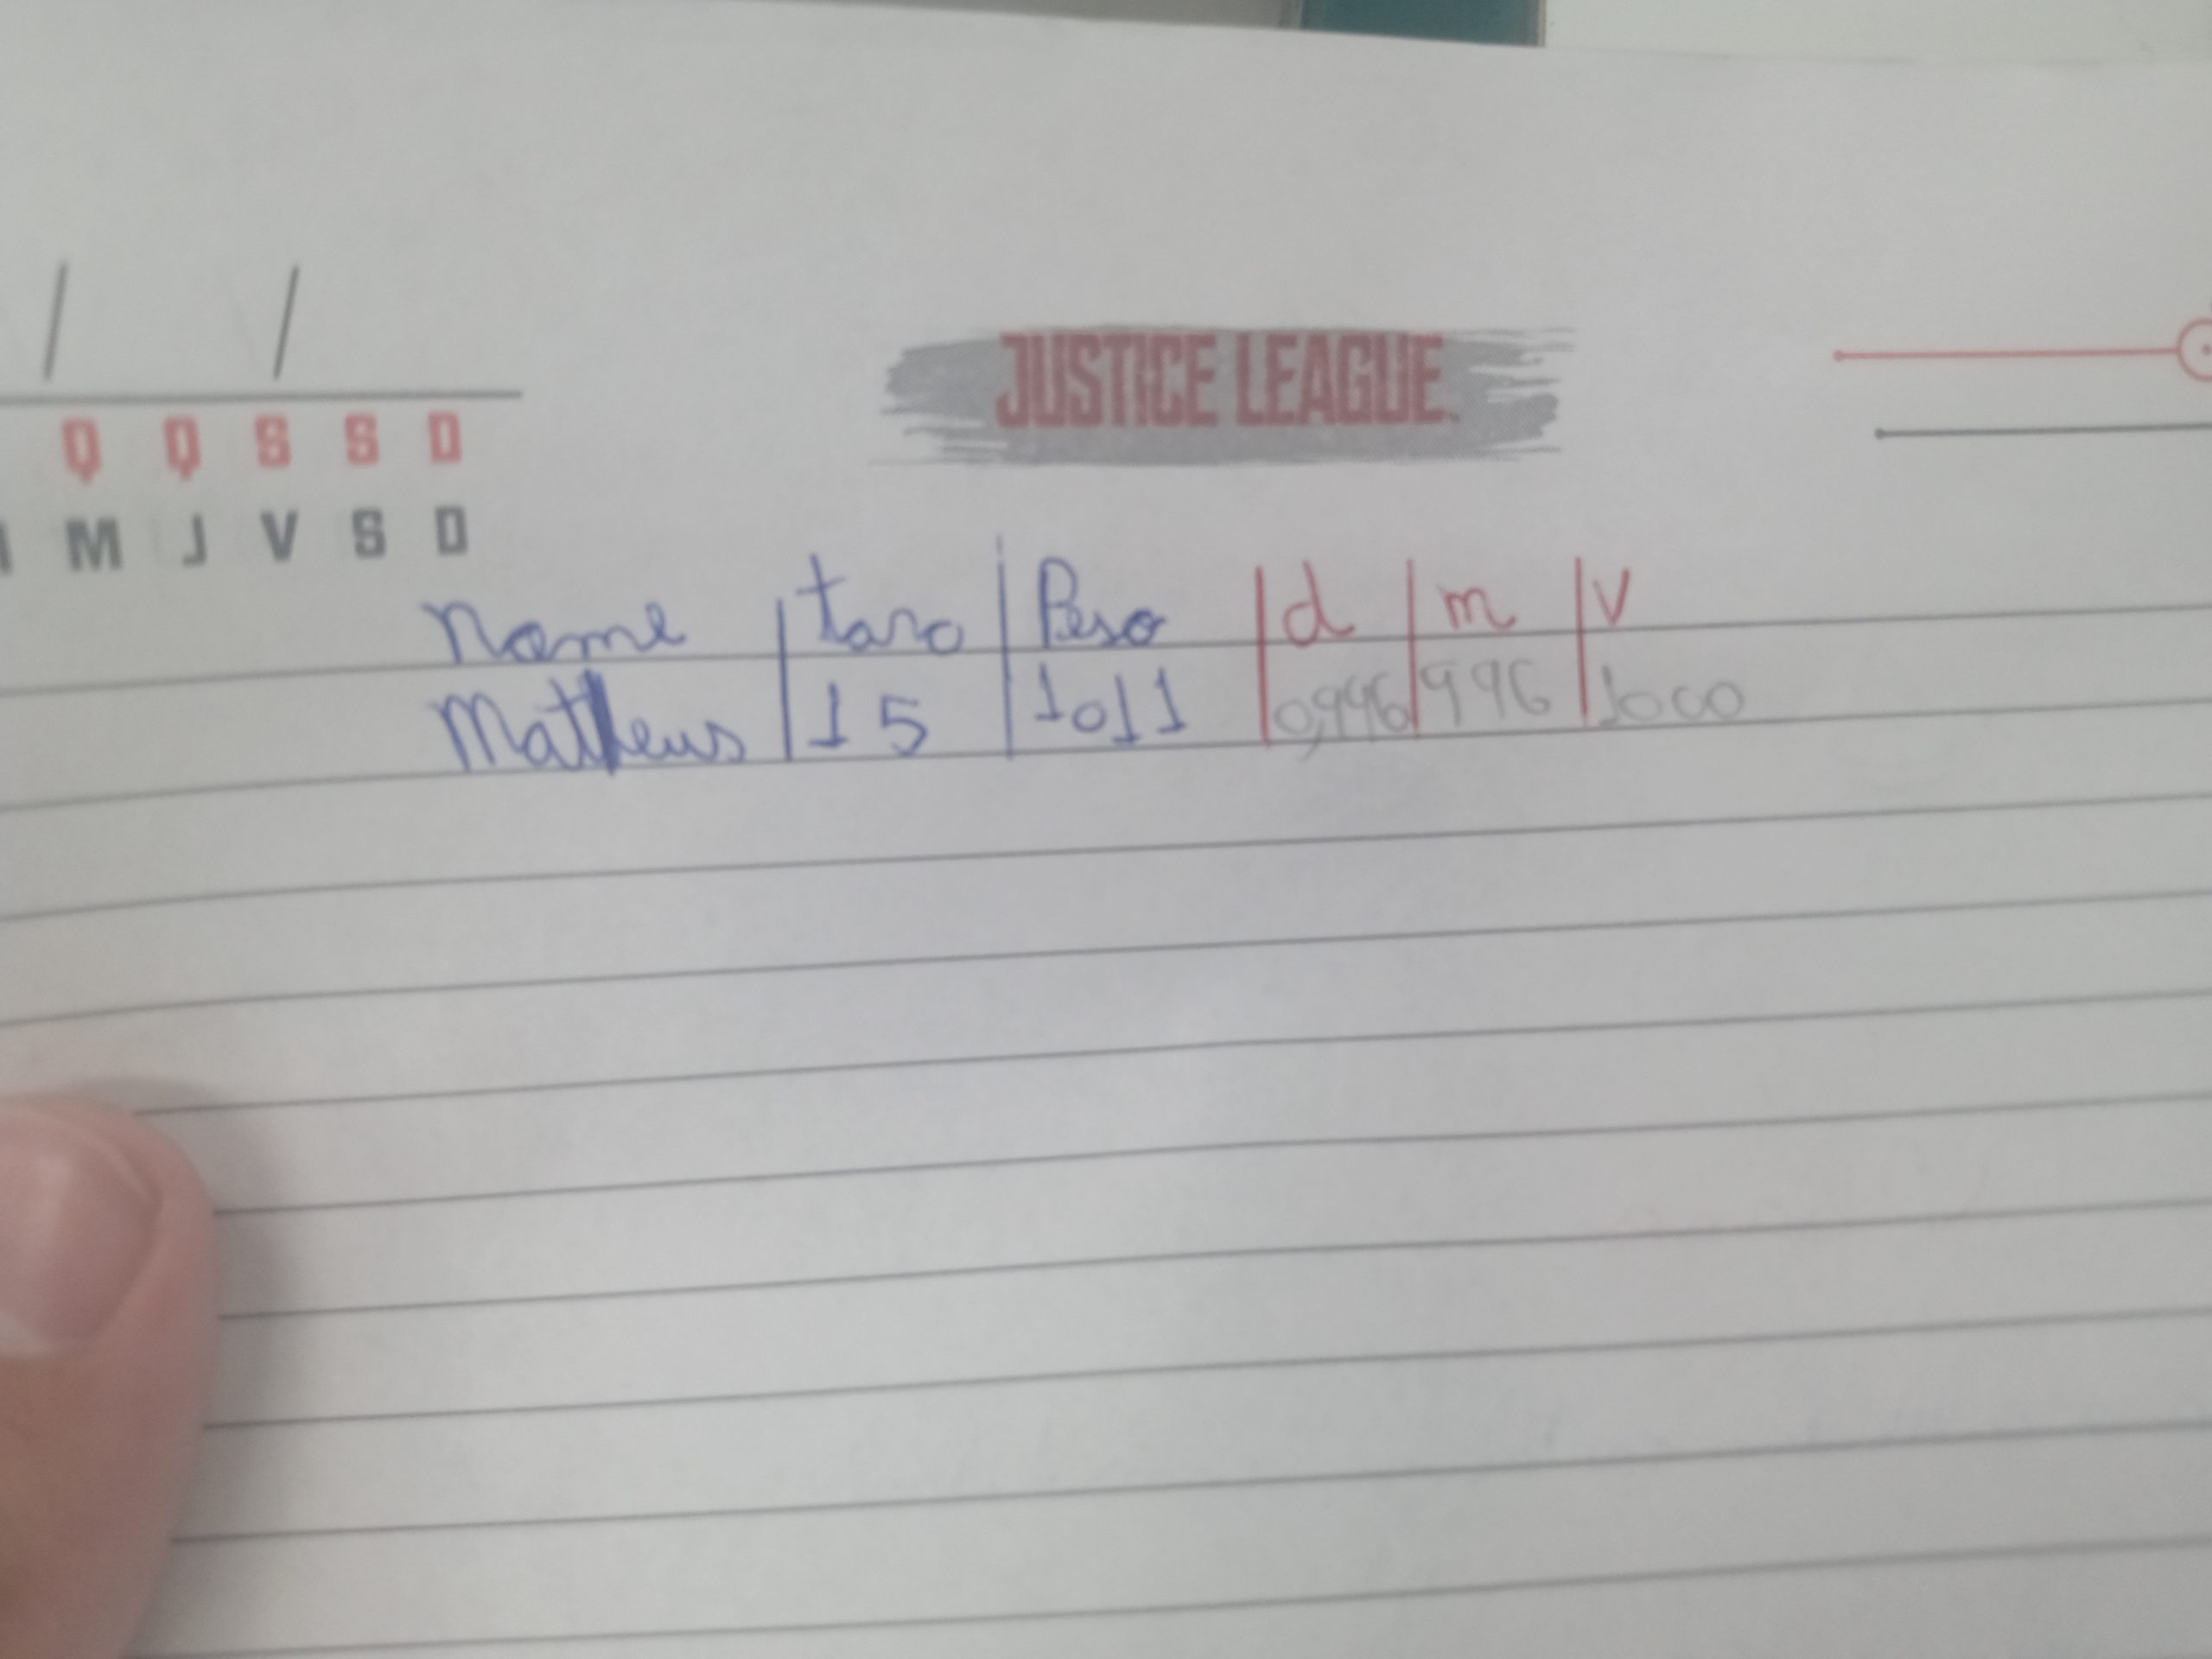 / /
JUSTICE LEAGUE
Q Q S S D
M J V S D
Nome | tara | Peso | d | m | v
Matheus | 15 | 1011 | 0,996 | 996 | 1000